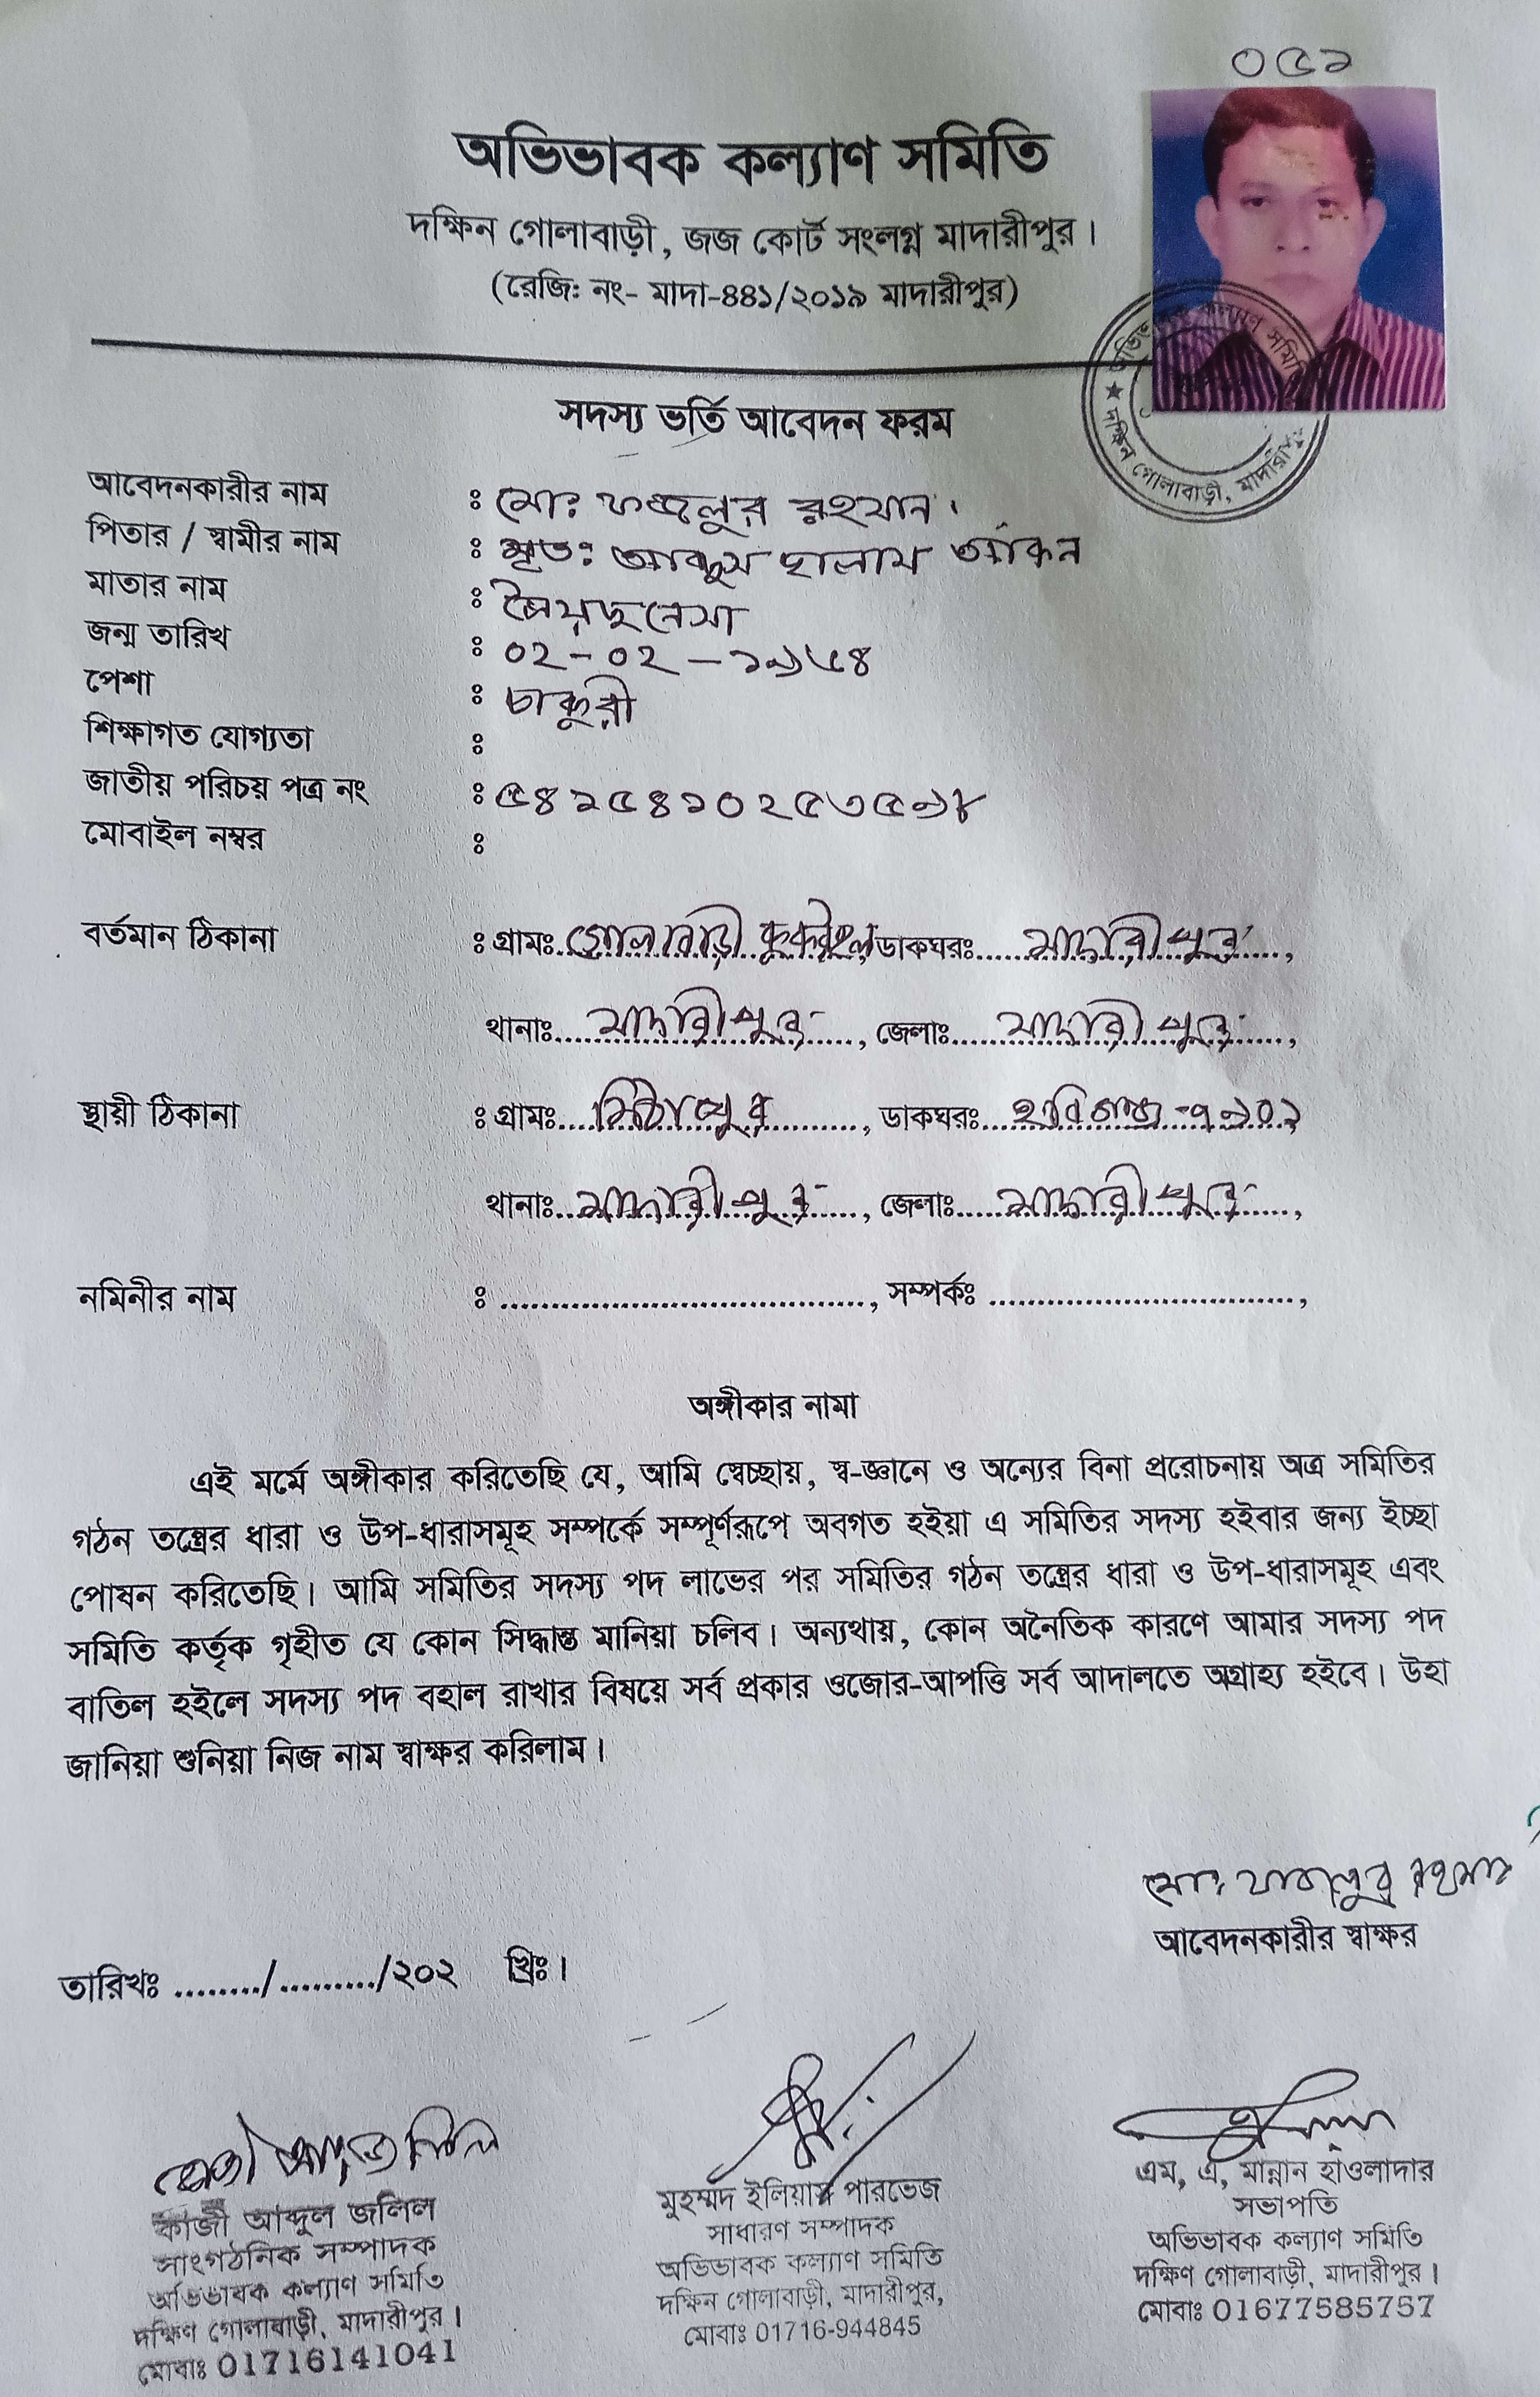 ০৫১
অভিভাবক কল্যাণ সমিতি
দক্ষিন গোলাবাড়ী, জজ কোর্ট সংলগ্ন মাদারীপুর।
(রেজি: নং- মাদা-৪৪১/২০১৯ মাদারীপুর)
সদস্য ভর্তি আবেদন ফরম
আবেদনকারীর নাম : মোঃ ফজলুর রহমান।
পিতার / স্বামীর নাম : মৃতঃ আব্দুস ছালাম আকন
মাতার নাম :
জন্ম তারিখ : ০২-০২-১৯৬৪
পেশা : চাকুরী
শিক্ষাগত যোগ্যতা :
জাতীয় পরিচয় পত্র নং : ৫৪১৫৪১০২৫৩৫৯৮
মোবাইল নম্বর :
বর্তমান ঠিকানা : গ্রামঃ গোলাবাড়ী ডাকঘরঃ মাদারীপুর,
থানাঃ মাদারীপুর, জেলাঃ মাদারীপুর,
স্থায়ী ঠিকানা : গ্রামঃ মিঠাপুর, ডাকঘরঃ হবিগঞ্জ-৭৯০১,
থানাঃ মাদারীপুর, জেলাঃ মাদারীপুর,
নমিনীর নাম : ..................................., সম্পর্কঃ ...............................,
অঙ্গীকার নামা
এই মর্মে অঙ্গীকার করিতেছি যে, আমি স্বেচ্ছায়, স্ব-জ্ঞানে ও অন্যের বিনা প্ররোচনায় অত্র সমিতির
গঠন তন্ত্রের ধারা ও উপ-ধারাসমূহ সম্পর্কে সম্পূর্ণরূপে অবগত হইয়া এ সমিতির সদস্য হইবার জন্য ইচ্ছা
পোষন করিতেছি। আমি সমিতির সদস্য পদ লাভের পর সমিতির গঠন তন্ত্রের ধারা ও উপ-ধারাসমূহ এবং
সমিতি কর্তৃক গৃহীত যে কোন সিদ্ধান্ত মানিয়া চলিব। অন্যথায়, কোন অনৈতিক কারণে আমার সদস্য পদ
বাতিল হইলে সদস্য পদ বহাল রাখার বিষয়ে সর্ব প্রকার ওজোর-আপত্তি সর্ব আদালতে অগ্রাহ্য হইবে। উহা
জানিয়া শুনিয়া নিজ নাম স্বাক্ষর করিলাম।
মোঃ ফজলুর রহমান
আবেদনকারীর স্বাক্ষর
তারিখঃ ......../........./২০২ খ্রিঃ।
কাজী আব্দুল জলিল
কাজী আব্দুল জলিল
সাংগঠনিক সম্পাদক
অভিভাবক কল্যাণ সমিতি
দক্ষিণ গোলাবাড়ী, মাদারীপুর।
মোবাঃ 01716141041
মুহম্মদ ইলিয়াস পারভেজ
সাধারণ সম্পাদক
অভিভাবক কল্যাণ সমিতি
দক্ষিন গোলাবাড়ী, মাদারীপুর,
মোবাঃ 01716-944845
এম, এ, মান্নান হাওলাদার
সভাপতি
অভিভাবক কল্যাণ সমিতি
দক্ষিণ গোলাবাড়ী, মাদারীপুর।
মোবাঃ 01677585757
অভিভাবক কল্যাণ সমিতি
দক্ষিন গোলাবাড়ী, মাদারীপুর